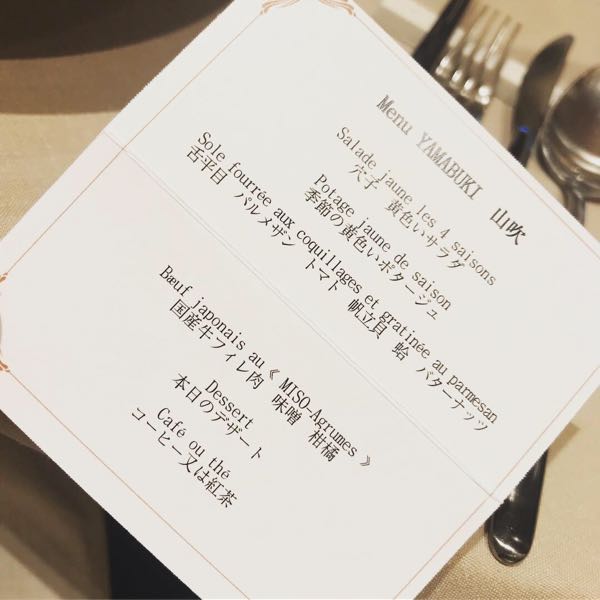 Menu YAMABUKI 山吹
Salade jaune les 4 saisons
穴子 黄色いサラダ
Potage jaune de saison
季節の黄色いポタージュ
Sole fourrée aux coquillages et gratinée au parmesan
舌平目 パルメザン トマト 帆立貝 蛤 バターナッツ
Bœuf japonais au《 MISO-Agrumes 》
国産牛フィレ肉 味噌 柑橘
Dessert
本日のデザート
Café ou thé
コーヒー又は紅茶